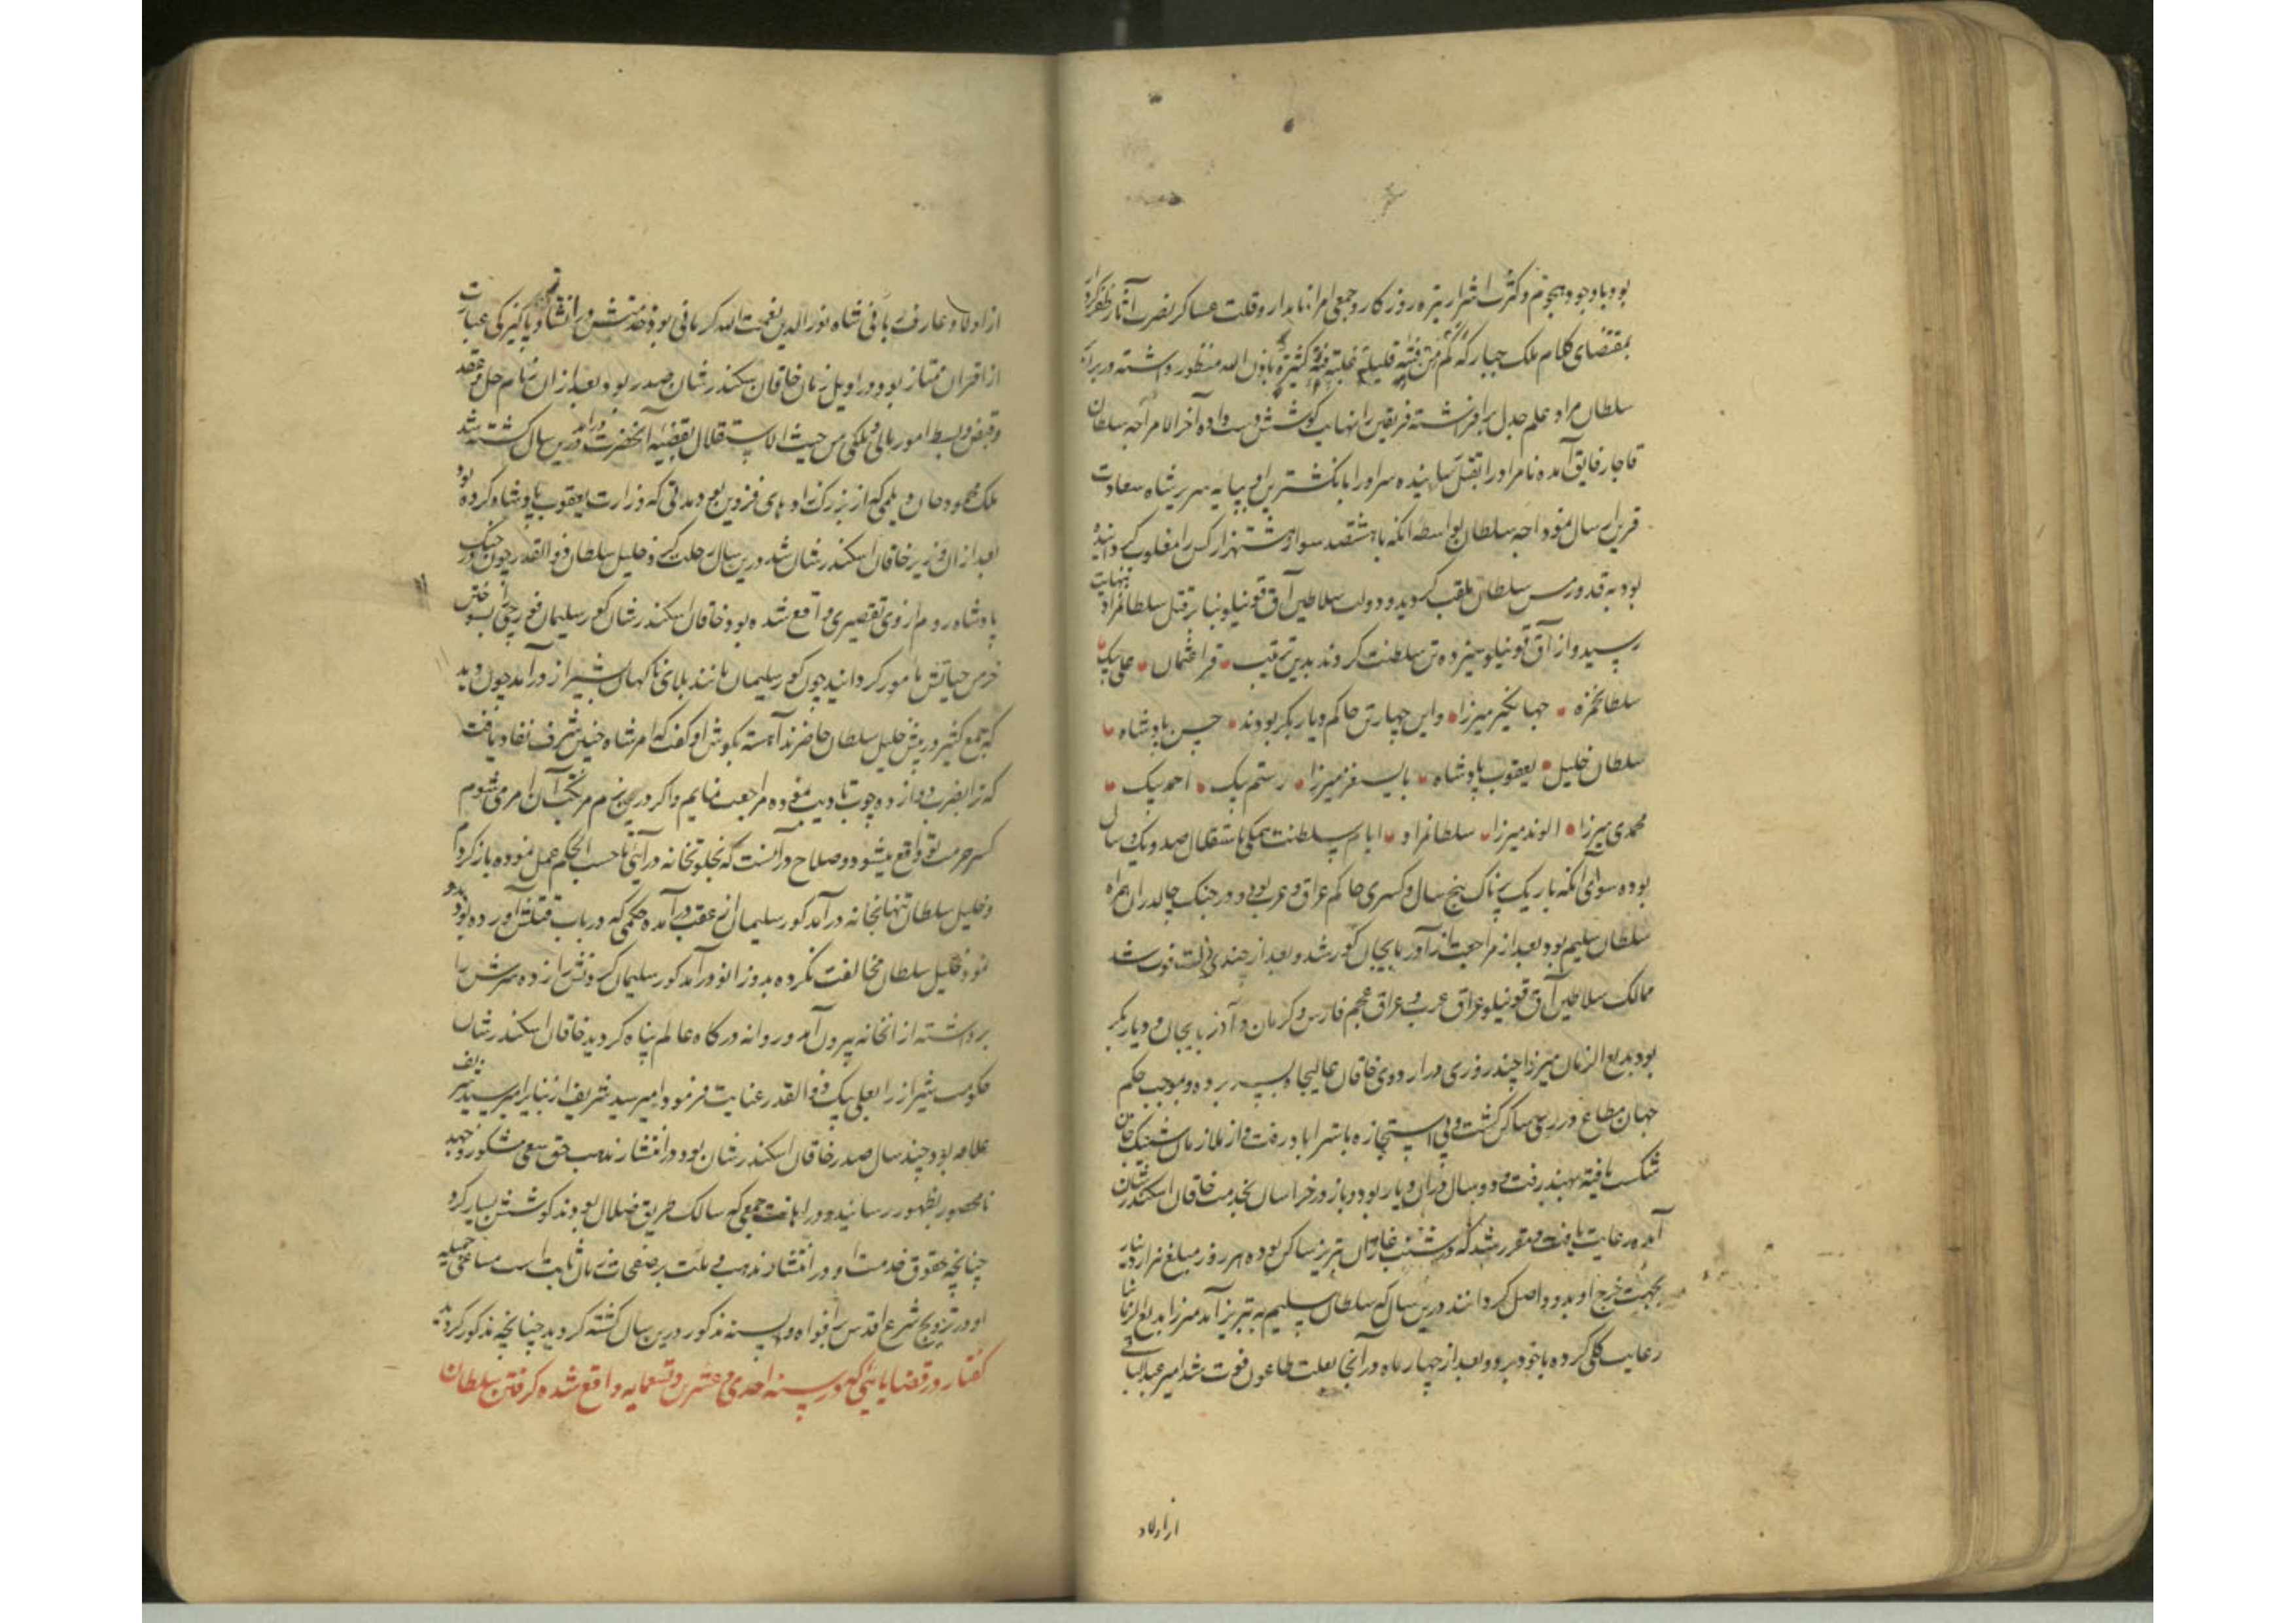 بود و با وجود هجوم و کثرت اشرار تیره روزکار و جمعی امرا نامدار و قلت عساکر نصرت آثار ظفر کردار
بمقتضای کلام ملک جبار که کم من فئة قلیلة غلبت فئة کثیرة باذن الله منظور داشته در برابر
سلطان مراد علم جدل برافراشته فریقین را نهایت کوشش دست داده آخر الامر اجه سلطان
قاجار فایق آمده نامراد را بقتل رسانیده سر او را با نکشترین او بپایه سریر شاه سعادت
قرین ارسال نمود اجه سلطان بواسطه آنکه با هشتصد سوار هشت هزار کس را مغلوب کردانیده
بود به قدورمس سلطان ملقب کردید و دولت سلاطین آق قوینلو بنا بر قتل سلطانمراد بنهایت
رسید و از آق قوینلو سیزده تن سلطنت کردند بدین ترتیب قرا عثمان علی بیک
سلطانحمزه جهانکیر میرزا و این چهار تن حاکم دیار بکر بودند حسن پادشاه
سلطان خلیل یعقوب پادشاه بایسنغر میرزا رستم بیک احمد بیک
محمدی میرزا الوند میرزا سلطانمراد ایام سلطنت همکی باستقلال صد و یک سال
بوده سوای آنکه باریک پرناک پنج سال و کسری حاکم عراق عرب بود و در جنک چالدران همراه
سلطان سلیم بود بعد از مراجعت از آذربایجان کور شد و بعد از چندی فوت شد
ممالک سلاطین آق قوینلو عراق عرب و عراق عجم فارس و کرمان و آذربایجان و دیار بکر
بود بدیع الزمان میرزا چند روزی در اردوی خاقان عالیجاه بسر برده و بموجب حکم
جهان مطاع در ری ساکن کشت و بی استجازه باسترآباد رفت و از ملازمان شیبک خان
شکست یافته بهند رفت و دو سال در آن دیار بود و باز در خراسان بخدمت خاقان اسکندر شان
آمده رعایت یافت و مقرر شد که در شنب غازان تبریز ساکن بوده هر روز مبلغ هزار دینار
بجهت خرج او بدو واصل کردانند درین سال که سلطان سلیم به تبریز آمد میرزا بدیع الزمانرا
رعایت کلی کرده با خود برد و بعد از چهار ماه در آنجا بعلت طاعون فوت شد امیر عبد الباقی
از اولاد
از اولاد عارف ربانی شاه نورالدین نعمت الله کرمانی بود و خدمتش در انشا و پاکیزکی عبارت
از اقران ممتاز بود و در اوایل زمان خاقان سکندر شان صدر بود و بعد از آن زمام حل و عقد
و قبض و بسط امور مالی و ملکی من حیث الاستقلال بقبضه آنحضرت درآمد درین سال کشته شد
ملک محمود خان دیلمی که از بزرک زادهای قزوین بود و مدتی که وزارت یعقوب پادشاه کرده بود
بعد از آن وزیر خاقان اسکندر شان شد درین سال رحلت کرد خلیل سلطان ذوالقدر چون در جنک
پادشاه روم از وی تقصیری واقع شده بود خاقان اسکندر شان کور سلیمان قورچی را بسوختن
خرمن حیاتش مامور کردانید چون کور سلیمان مانند بلای ناکهان بشیراز درآمد چون دید
که جمع کثیر در پیش خلیل سلطان حاضرند آهسته بکوش او کفت که امر شاه چنین شرف نفاذ یافت
که ترا بضرب دوازده چوب تادیب نموده مراجعت نمایم و اکر در مجلس مرتکب آن امر می شوم
کسر حرمت تو واقع میشود و صلاح در آنست که بخلوتخانه در آیی تا حسب الحکم عمل نموده باز کردم
و خلیل سلطان تنها بخانه درآمد کور سلیمان از عقب درآمده حکمی که در باب قتلش آورده بود بدو
نمود خلیل سلطان مخالفت نکرده بدو زانو درآمد کور سلیمان کردنش را زده سرش را
برداشته از آنخانه بیرون آمد و روانه درکاه عالم پناه کردید خاقان اسکندر شان
حکومت شیراز را بعلی بیک ذوالقدر عنایت فرمود امیر سید شریف از نبایر امیر سید شریف
علامه بود چند سال صدر خاقان اسکندر شان بود در انتشار مذهب حق سعی مشکور و جهد
نامحصور بظهور رسانید و در اهانت جمعی که سالک طریق ضلال بودند کوشش بسیار کرد
چنانچه حقوق خدمت او در انتشار مذهب و ملت بر صفحات زمان ثابت است مساعی جمیله
او در ترویج شرع اقدس بر افواه و السنه مذکور درین سال کشته کردید چنانچه مذکور کردید
کفتار در قضایایی که در سنه احدی و عشرین و تسعمایه واقع شده کرفتن سلطان